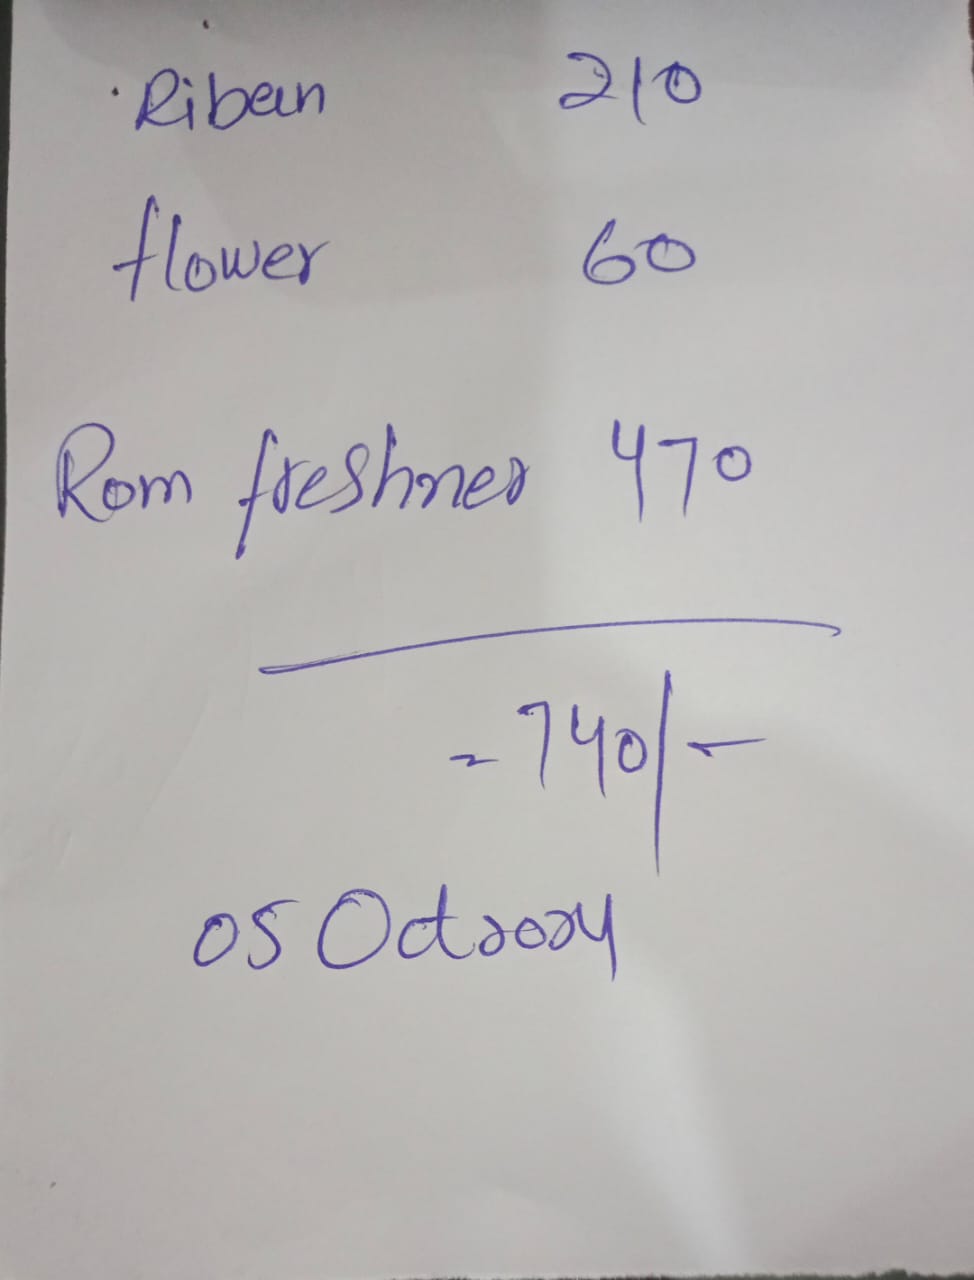 Riban 210
flower 60
Rom freshner 470
= 740/-
05 Oct 2024